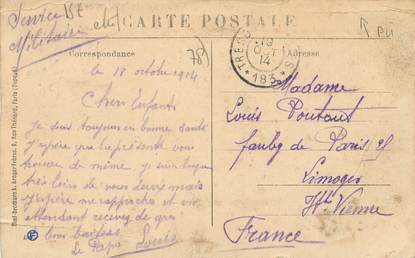 Service
Militaire
CARTE POSTALE
Correspondance
Adresse
78
TRESOR
19
OCT
14
183
le 18 octobre 1914
Chers Enfants
Je suis toujours en bonne santé
J'espère que la présente vous
trouvera de même, je suis toujours
très loin de vous deux mais
J'espère me rapprocher et en
attendant recevez de gros
bons baisers
Le Papa Louis
Madame
Louis Poutaut
faubg de Paris
Limoges
Hte Vienne
France